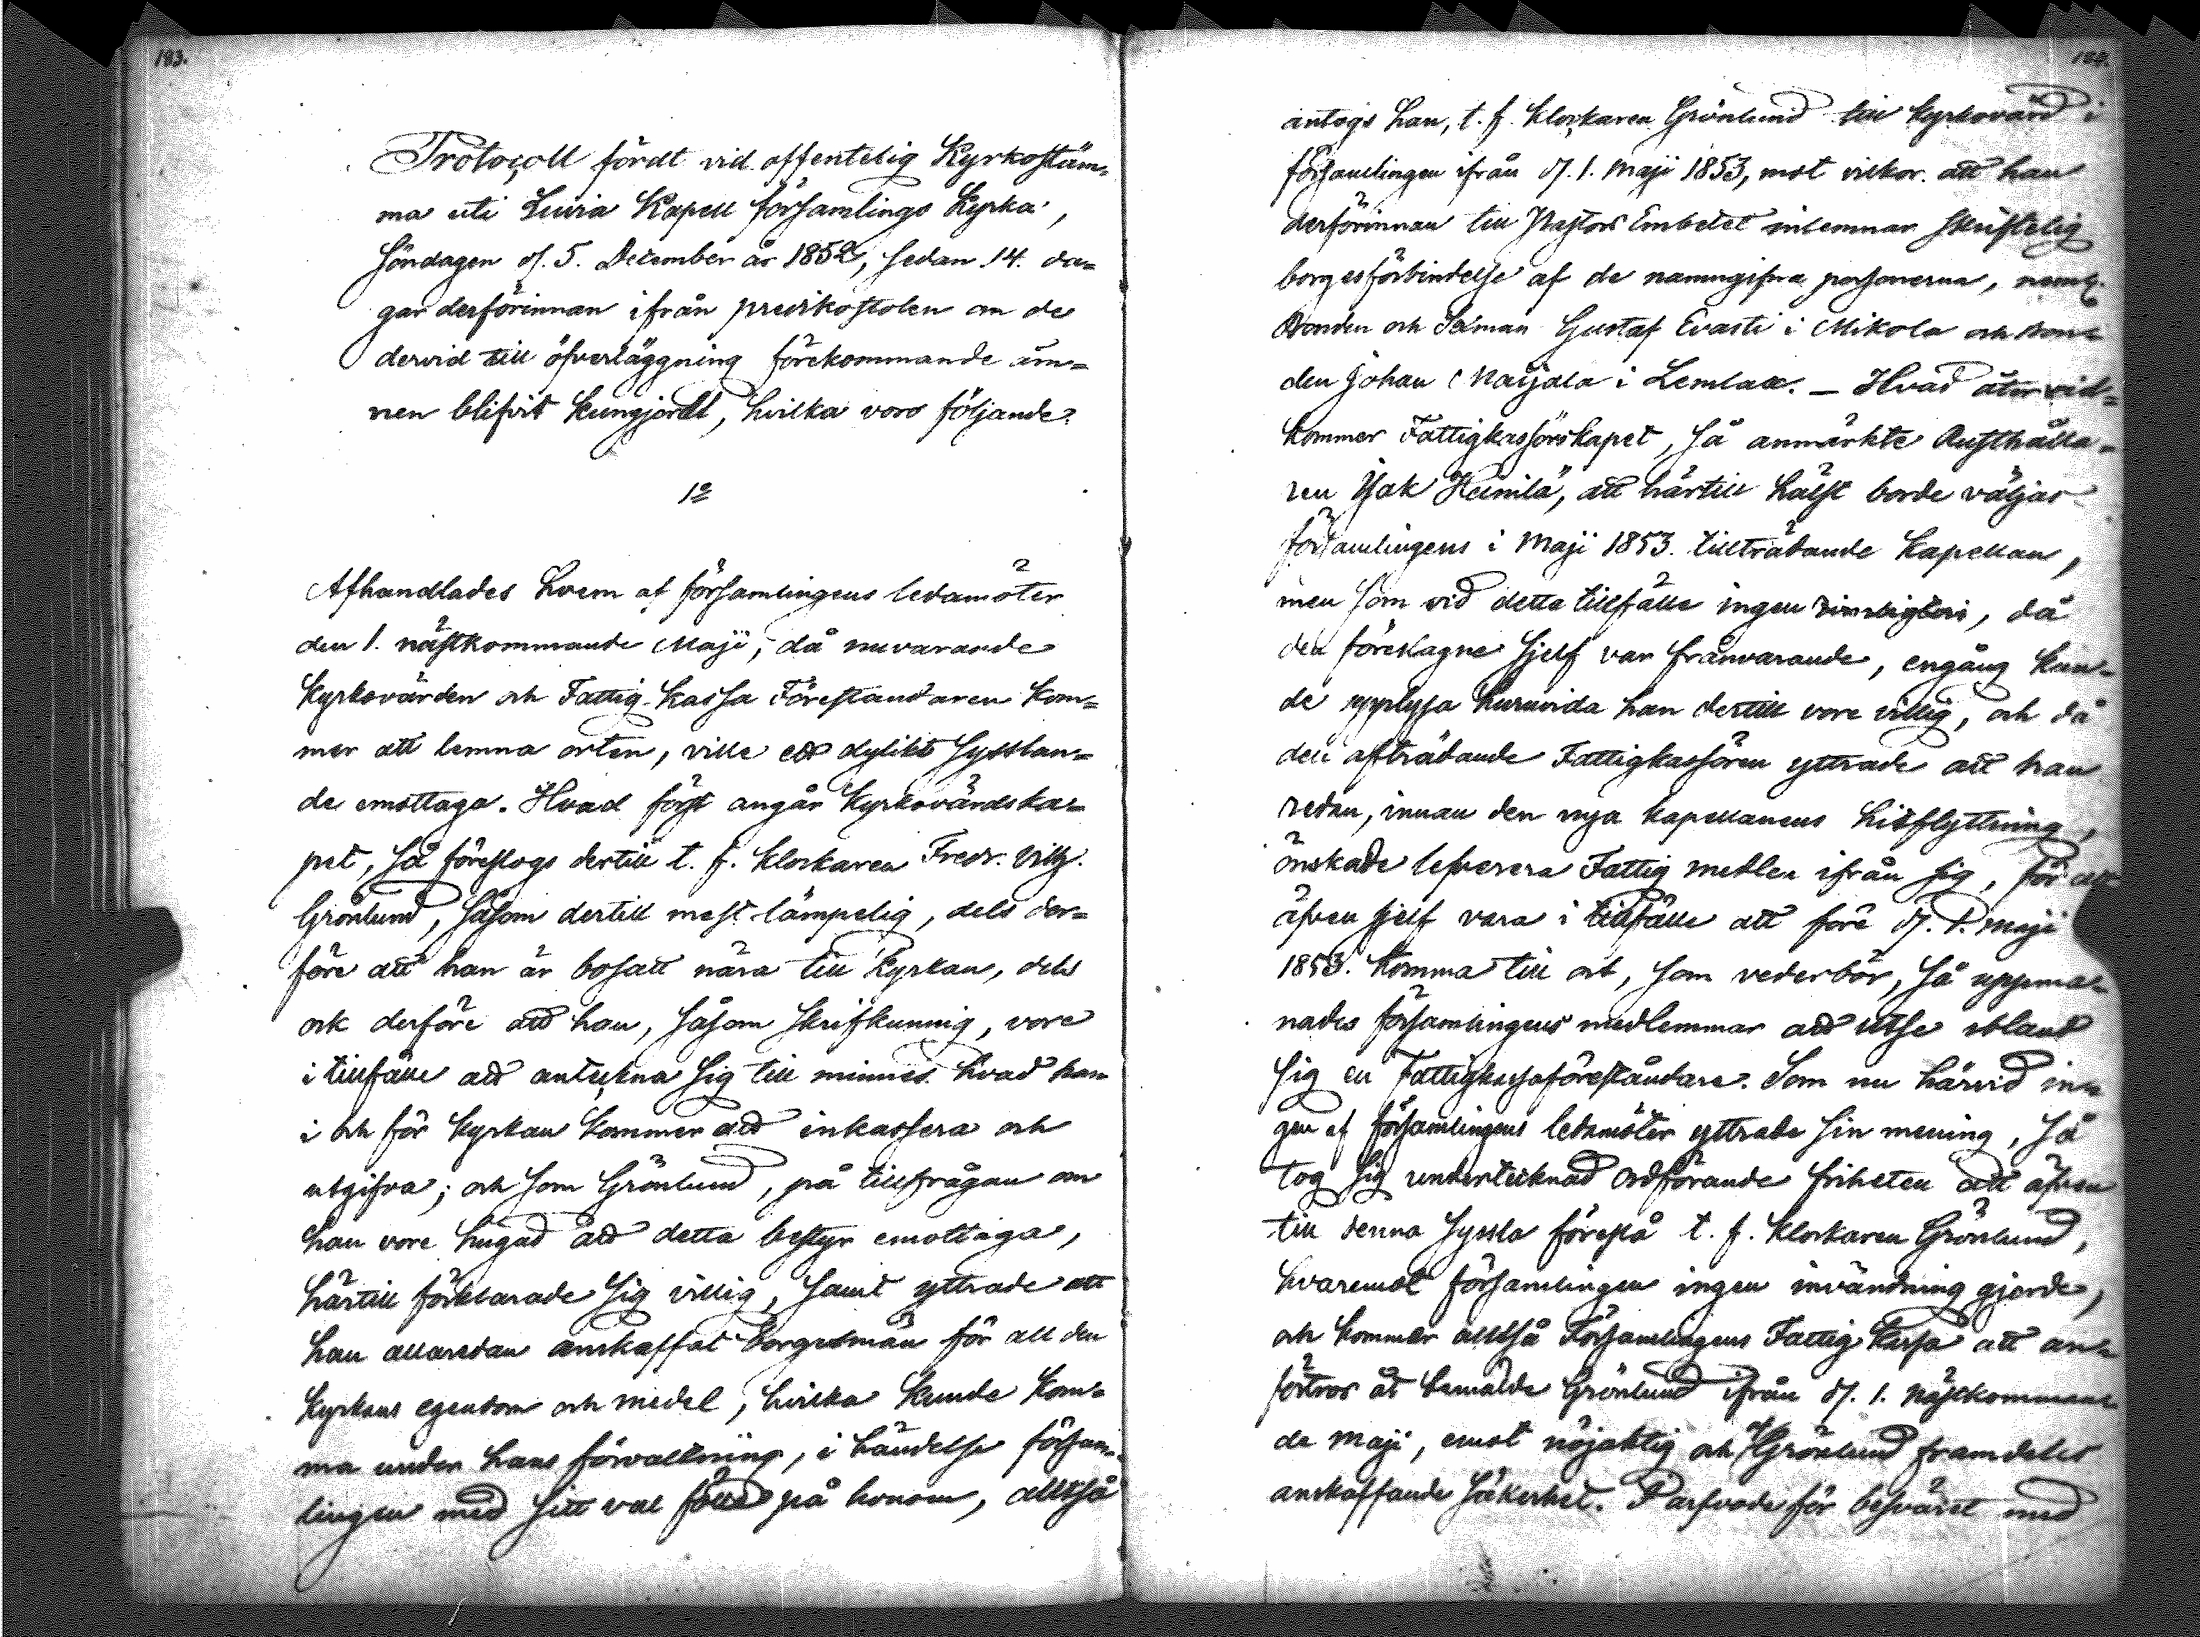 193.
Protocoll fördt vid offentelig Kyrkostäm=
ma uti Luvia Kapell församlings Kyrka,
Söndagen d. 5. December år 1852, sedan 14. da=
gar derförinnan ifrån predikostolen om de
dervid till öfverläggning förekommande äm=
nen blifvit kungjordt, hvilka voro följande:
1o
Afhandlades hvem af församlingens ledamöter
den 1. nästkommande Maji, då nuvarande
Kyrkovärden och Fattig-kassa Föreståndaren kom=
mer att lemna orten, ville ett dylikt sysslan=
de emottaga. Hvad först angår Kyrkovärdska=
pet, så föreslogs dertill t. f. klockaren Fredr. Vilh.
Grönlund, såsom dertill mest lämpelig, dels der=
före att han är bosatt nära till Kyrkan, dels
ock derföre att han, såsom skrifkunnig, vore
i tillfälle att anteckna sig till minnes hvad han
i och för kyrkan kommer att inkassera och
utgifva; och som Grönlund, på tillfrågan om
han vore hugad att detta bestyr emottaga,
härtill förklarade sig villig, samt yttrade att
han allaredan anskaffat borgesmän för all den
Kyrkans egendom och medel, hvilka kunde kom=
ma under hans förvaltning, i händelse försam=
lingen med sitt val fölle på honom, alltså
antogs han, t. f. klockaren Grönlund till kyrkovärd i
församlingen ifrån d. 1. Maji 1853, mot vilkor att han
derförinnan till Pastors Embetet inlemnar skriftelig
borgesförbindelse af de namngifna personerna, neml.
Bonden och Sexman Gustaf Evasti i Mikola och Bon=
den Johan Naijala i Lemlax. — Hvad åter vid=
kommer Fattigkassörskapet, så anmärkte Rusthålla=
ren Isak Heinilä, att härtill hälst borde väljas
församlingens i Maji 1853. tillträdande Kapellan,
men som vid detta tillfälle ingen, då
den föreslagne sjelf var frånvarande, engång kun=
de upplysa huruvida han dertill vore villig, och då
den afträdande Fattigkassören yttrade att han
redan, innan den nya kapellanens hitflyttning,
önskade lefverera Fattig medlen ifrån sig, för att
äfven sjelf vara i tillfälle att före d. 1. Maji
1853. komma till ort, som vederbör, så uppma=
nades församlingens medlemmar att utse ibland
sig en Fattigkassaföreståndare. Som nu härvid in=
gen af församlingens ledamöter yttrade sin mening, så
tog sig undertecknad Ordförande friheten att äfven
till denna syssla föreslå t. f. klockaren Grönlund,
hvaremot församlingen ingen invändning gjorde,
och kommer alltså Församlingens Fattig Kassa att an=
förtros åt bemälde Grönlund ifrån d. 1. nästkomman=
de Maji, emot nöjaktig och Grönlund framdeles
anskaffande säkerhet. Parfvode för besväret med